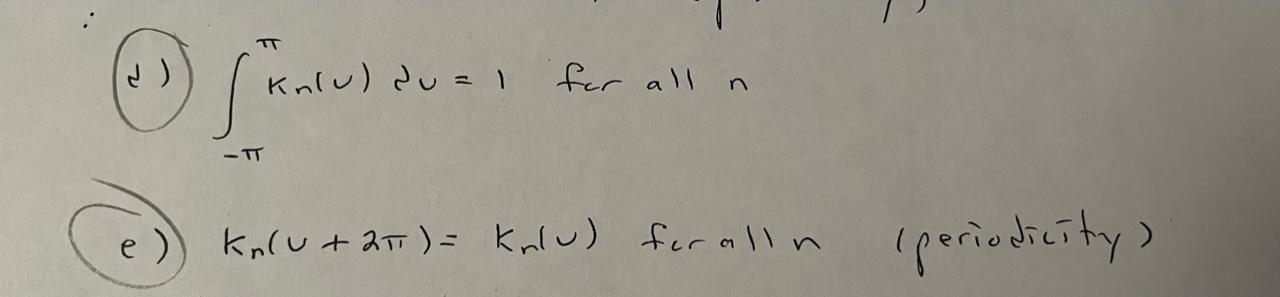 d) ∫_{-π}^{π} Kn(u) du = 1 for all n
e) Kn(u + 2π) = Kn(u) for all n (periodicity)